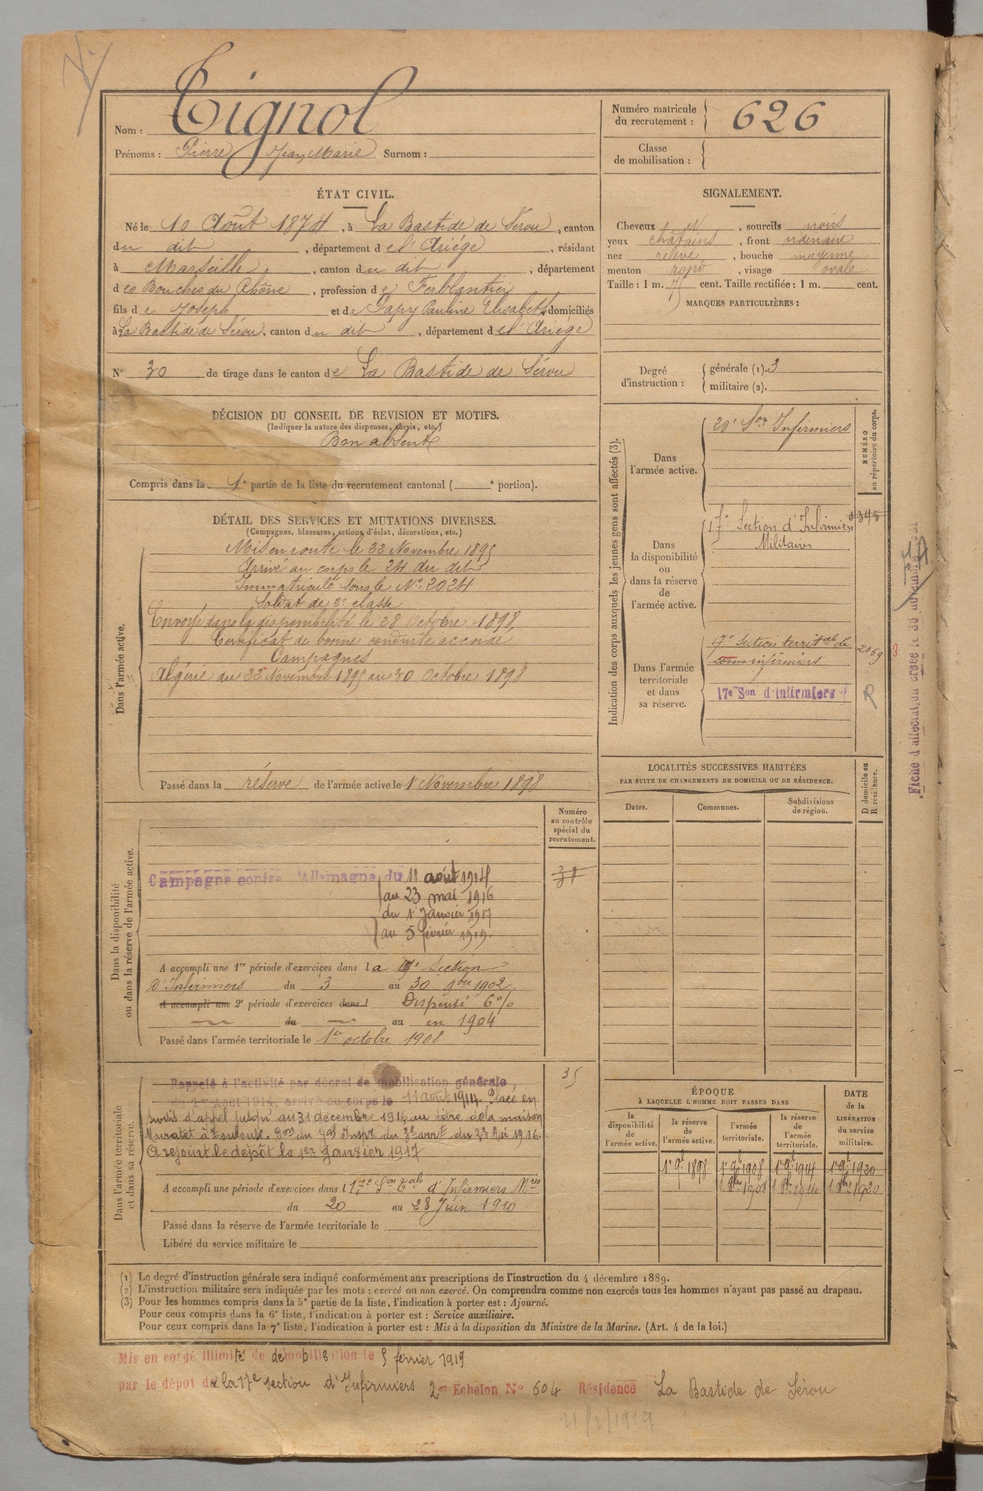 Tignol
Nom :
Prénoms : Pierre Jean Marie Surnom :
Numéro matricule du recrutement : 626
Classe de mobilisation :
ÉTAT CIVIL.
Né le 10 Août 1874, à La Bastide de Sérou, canton
du dit, département de l'Ariège, résidant
à Marseille, canton du dit, département
des Bouches du Rhône, profession de Ferblantier
fils de Joseph et de Papy Pauline Elisabeth domiciliés
à La Bastide de Sérou, canton du dit, département de l'Ariège
N° 30 de tirage dans le canton de La Bastide de Sérou
SIGNALEMENT.
Cheveux et, sourcils noirs
yeux chatains, front ordinaire
nez relevé, bouche moyenne
menton rond, visage ovale
Taille : 1 m. cent. Taille rectifiée : 1 m. cent.
MARQUES PARTICULIÈRES :
Degré d'instruction : générale (1). 3
militaire (2).
DÉCISION DU CONSEIL DE REVISION ET MOTIFS.
(Indiquer la nature des dispenses, sursis, etc.)
Bon absent
Compris dans la 1e partie de la liste du recrutement cantonal ( e portion).
DÉTAIL DES SERVICES ET MUTATIONS DIVERSES.
(Campagnes, blessures, actions d'éclat, décorations, etc.)
Dans l'armée active.
Mis en route le 22 Novembre 1895
Arrivé au corps le 24 du dit
Immatriculé sous le N° 2024
Soldat de 2e classe
Envoyé dans la disponibilité le 28 Octobre 1898
Certificat de bonne conduite accordé
Campagnes
Algérie du 22 Novembre 1895 au 30 Octobre 1898
Passé dans la réserve de l'armée active le 1 Novembre 1898
Indication des corps auxquels les jeunes gens sont affectés (3).
NUMÉRO au répertoire du corps.
Dans l'armée active.
20e Son Infirmiers
Dans la disponibilité ou dans la réserve de l'armée active.
17e Section d'Infirmiers
Militaires
Dans l'armée territoriale et dans sa réserve.
17e Section territale de
infirmiers
2169
17e Son d'infirmiers
R
Fiche d'affectation créée le
LOCALITÉS SUCCESSIVES HABITÉES
PAR SUITE DE CHANGEMENTS DE DOMICILE OU DE RÉSIDENCE.
Dates. Communes. Subdivisions de région. D domicile ou R résidence.
Numéro au contrôle spécial du recrutement.
Dans la disponibilité ou dans la réserve de l'armée active.
Campagne contre l'Allemagne du 11 août 1914
au 23 mai 1916
du 1 Janvier 1917
au 5 février 1919.
A accompli une 1re période d'exercices dans la 17e Section
d'Infirmiers du 3 au 30 9bre 1902
A accompli une 2e période d'exercices dans l Dispensé 6%
du au en 1904
Passé dans l'armée territoriale le 1er octobre 1908
35
Dans l'armée territoriale et dans sa réserve.
Rappelé à l'activité par décret de mobilisation générale,
du 1er Août 1914, arrivé au corps le 11 août 1914. Placé en
sursis d'appel jusqu'au 31 décembre 1916 au titre de la maison
Muratet à Toulouse. du 23 Mai 1916
A rejoint le dépôt le 1er Janvier 1917
A accompli une période d'exercices dans l 17e Son Tale d'Infirmiers Mres
du 20 au 28 Juin 1910
Passé dans la réserve de l'armée territoriale le
Libéré du service militaire le
ÉPOQUE
À LAQUELLE L'HOMME DOIT PASSER DANS
la disponibilité de l'armée active. la réserve de l'armée active. l'armée territoriale. la réserve de l'armée territoriale. DATE de la LIBÉRATION du service militaire.
1er 9t 1898 1er 9t 1908 1er 9t 1914 1er 9t 1920
1 8bre 1908 1 8bre 1914 1 8bre 1920
(1) Le degré d'instruction générale sera indiqué conformément aux prescriptions de l'instruction du 4 décembre 1889.
(2) L'instruction militaire sera indiquée par les mots : exercé ou non exercé. On comprendra comme non exercés tous les hommes n'ayant pas passé au drapeau.
(3) Pour les hommes compris dans la 5e partie de la liste, l'indication à porter est : Ajourné.
Pour ceux compris dans la 6e liste, l'indication à porter est : Service auxiliaire.
Pour ceux compris dans la 7e liste, l'indication à porter est : Mis à la disposition du Ministre de la Marine. (Art. 4 de la loi.)
Mis en congé illimité de démobilisation le 5 fevrier 1919
par le dépôt de la 17e section d'Infirmiers 2e Echelon N° 604 Résidence La Bastide de Sérou
21/2/1919